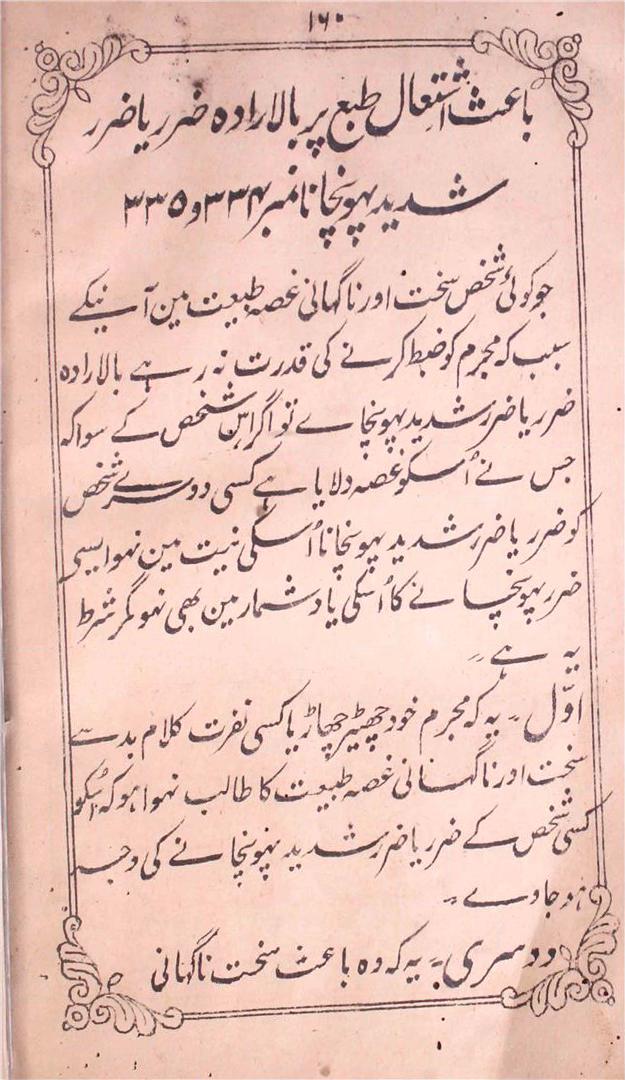 ۱۶۰
باعث اشتعال طبع پر بالارادہ ضرر یا ضرر
شدید پہونچانا نمبر ۳۳۴ و ۳۳۵
جو کوئی شخص سخت اور ناگہانی غصہ طبیعت مین آنیکے
سبب کہ مجرم کو ضبط کرنے کی قدرت نہ رہے بالارادہ
ضرر یا ضرر شدید پہونچاے تو اگر اس شخص کے سوا کہ
جس نے اُسکو غصہ دلایا ہے کسی دوسرے شخص
کو ضرر یا ضرر شدید پہونچانا اُسکی نیت مین نہو ایسی
ضرر پہونچانے کا اُسکی یاد شمار مین بھی نہو مگر شرط
یہ ہے۔
اوّل۔ یہ کہ مجرم خود چھیڑ چھاڑ یا کسی نفرت کلام بد سے
سخت اور ناگہانی غصہ طبیعت کا طالب نہوا ہو کہ اُسکو
کسی شخص کے ضرر یا ضرر شدید پہونچانے کی وجہ
ہو جاوے۔
دوسری۔ یہ کہ وہ باعث سخت ناگہانی